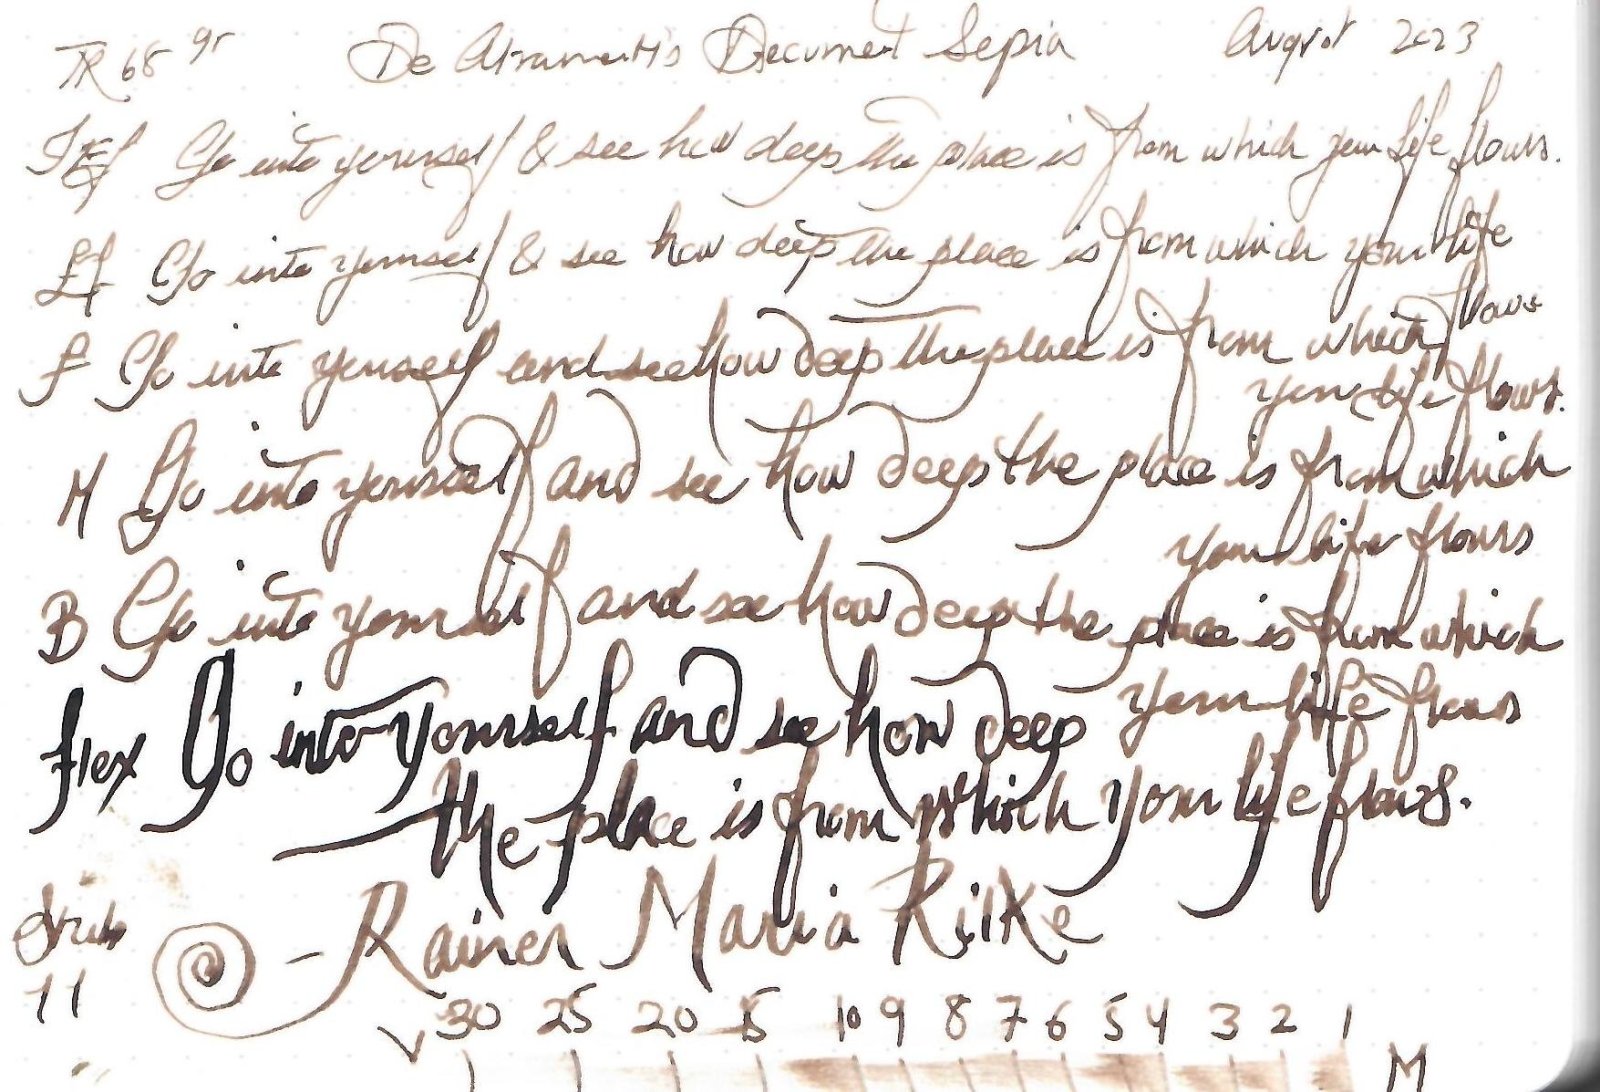 TR 68 gr De Atramentis Document Sepia August 2023
EEf Go into yourself & see how deep the place is from which your life flows.
Ef Go into yourself & see how deep the place is from which your life
flows
F Go into yourself and see how deep the place is from which
your life flows.
M Go into yourself and see how deep the place is from which
your life flows
B Go into yourself and see how deep the place is from which
your life flows
flex Go into yourself and see how deep
the place is from which your life flows.
Stub
11
- Rainer Maria Rilke
30 25 20 15 10 9 8 7 6 5 4 3 2 1
M